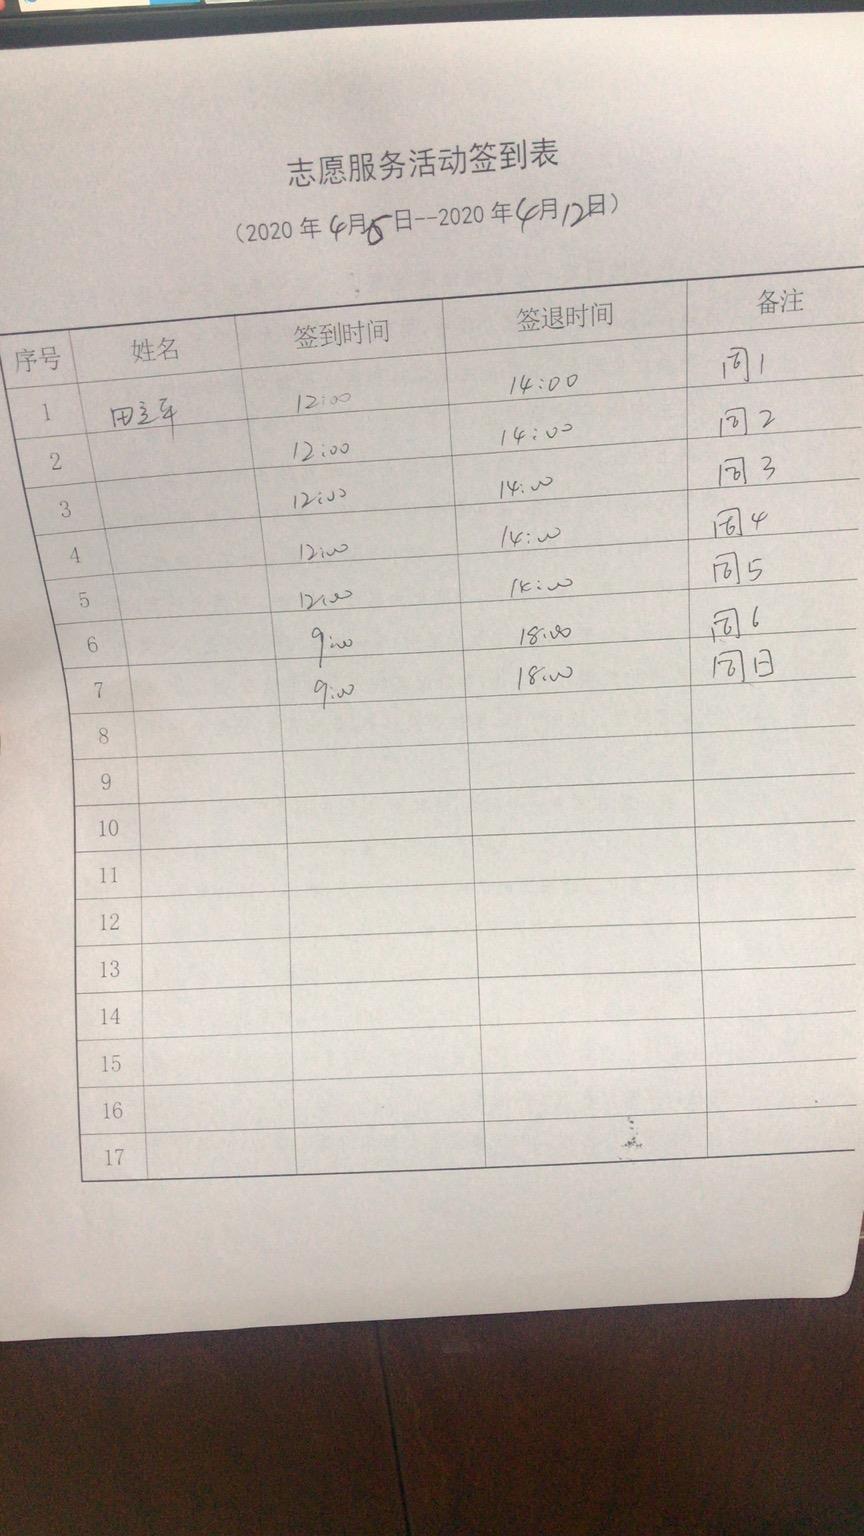 志愿服务活动签到表
(2020 年 4月 6日--2020 年 4月 12日)
序号 姓名 签到时间 签退时间 备注
1 12:00 14:00 周1
2 12:00 14:00 周2
3 12:00 14:00 周3
4 12:00 14:00 周4
5 12:00 14:00 周5
6 9:00 18:00 周6
7 9:00 18:00 周日
8
9
10
11
12
13
14
15
16
17